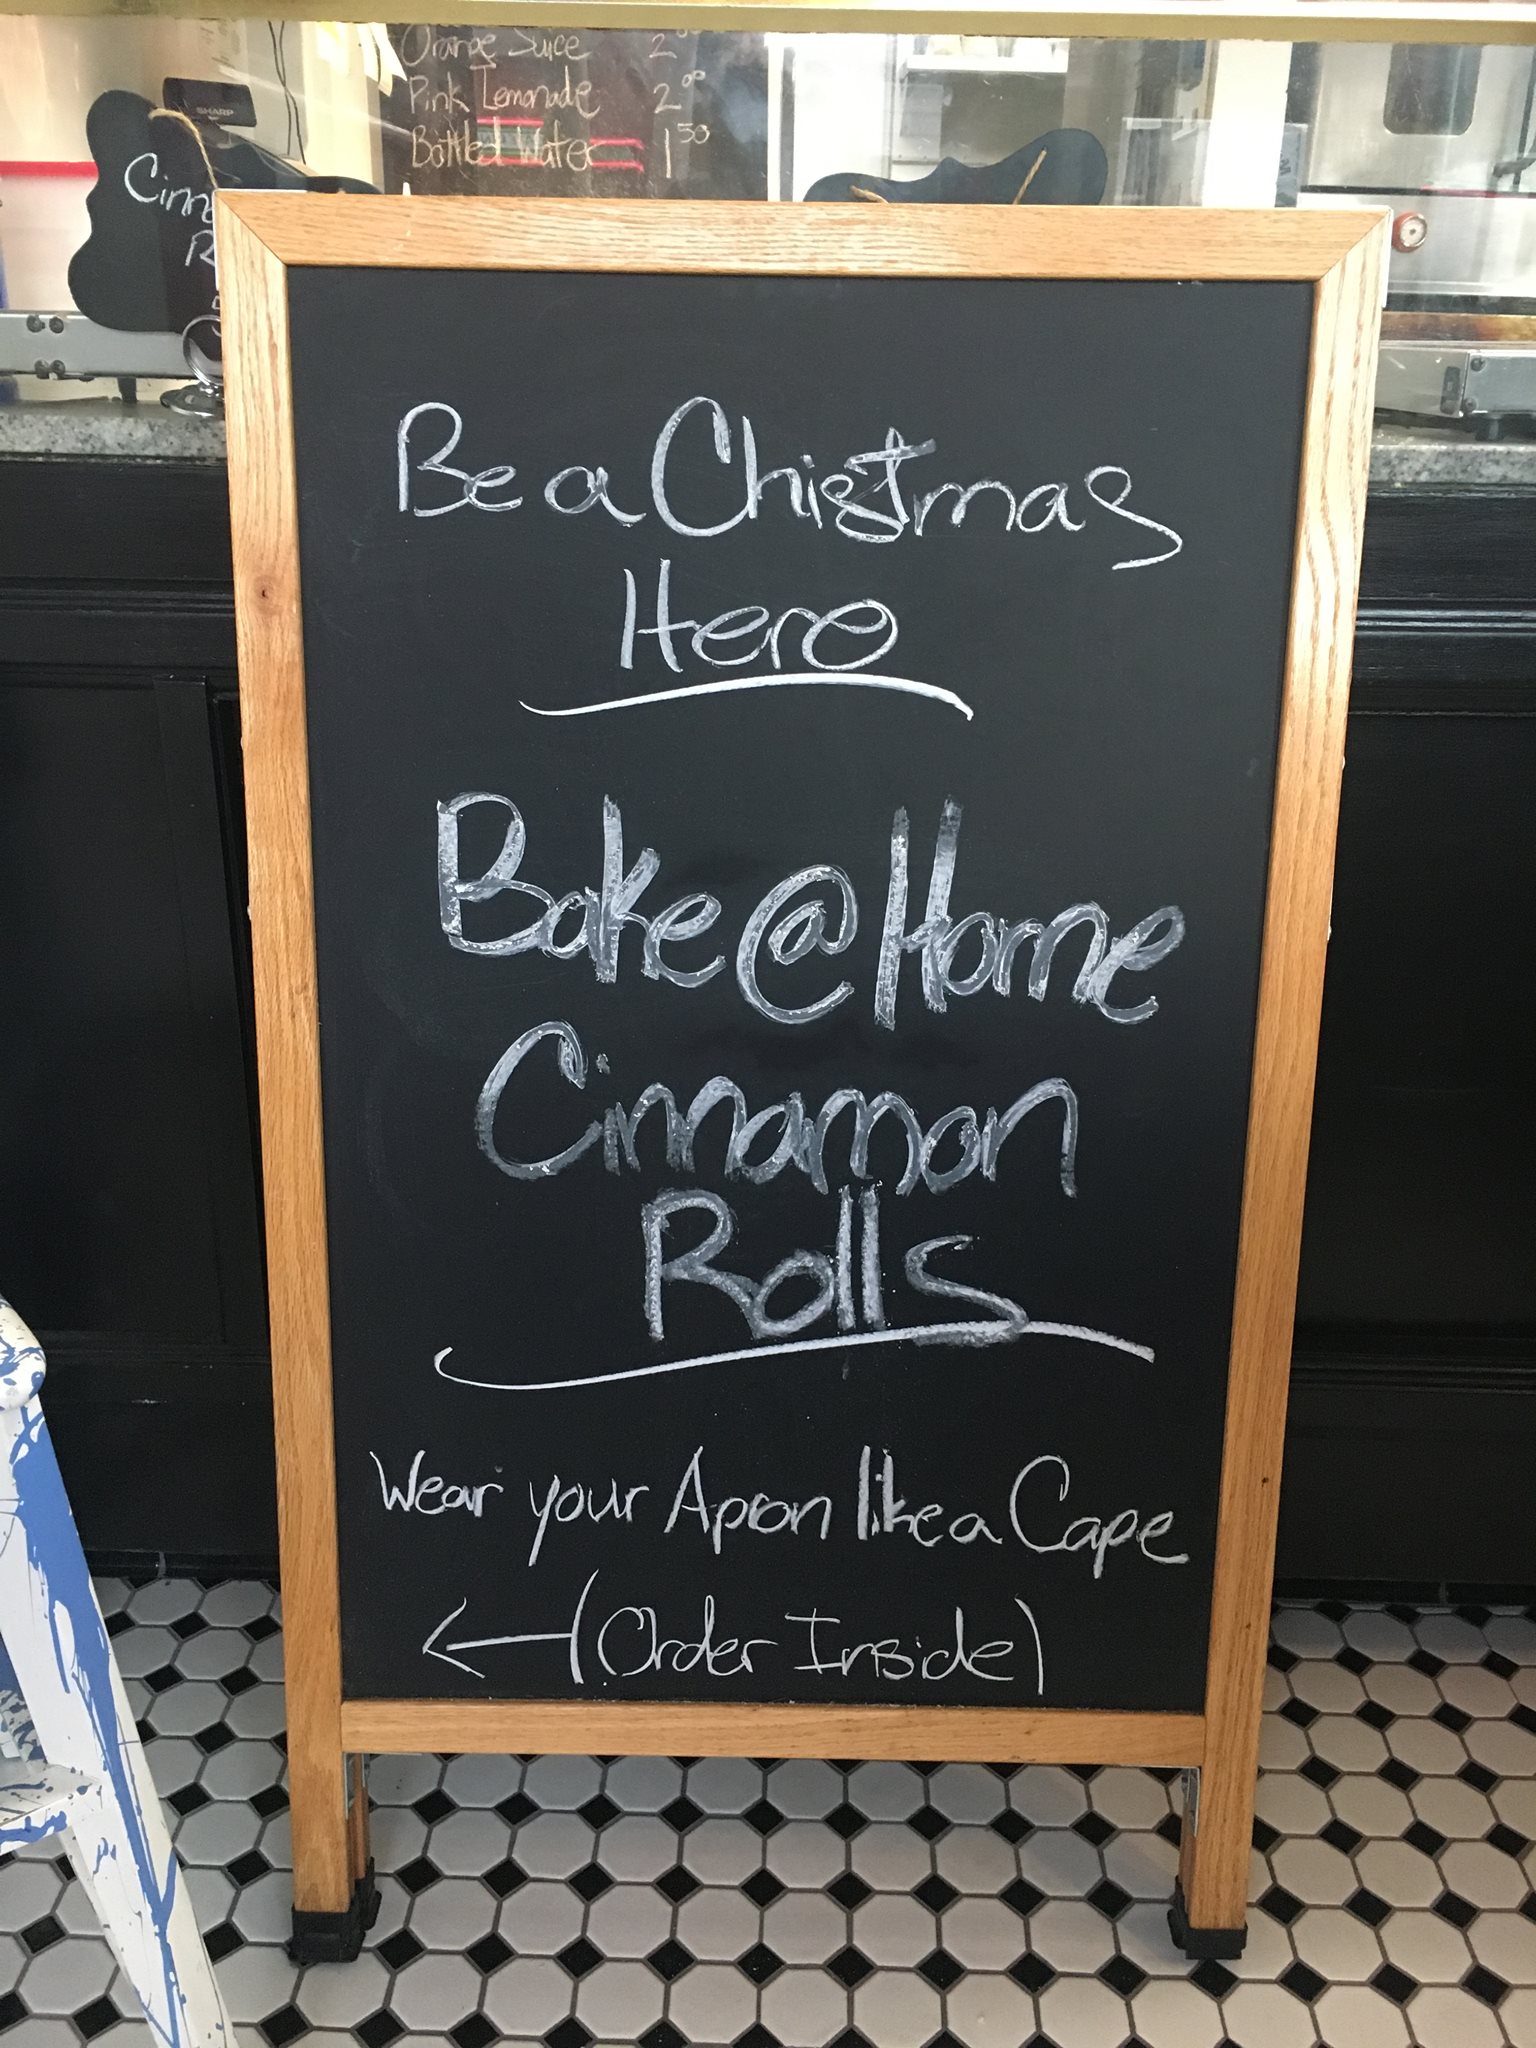 Orange Juice 2⁰⁰
Pink Lemonade 2⁰⁰
Bottled Water 1⁵⁰
SHARP
Be a Chistmas
Hero
Bake @ Home
Cinnamon
Rolls
Wear your Apron like a Cape
← (Order Inside)